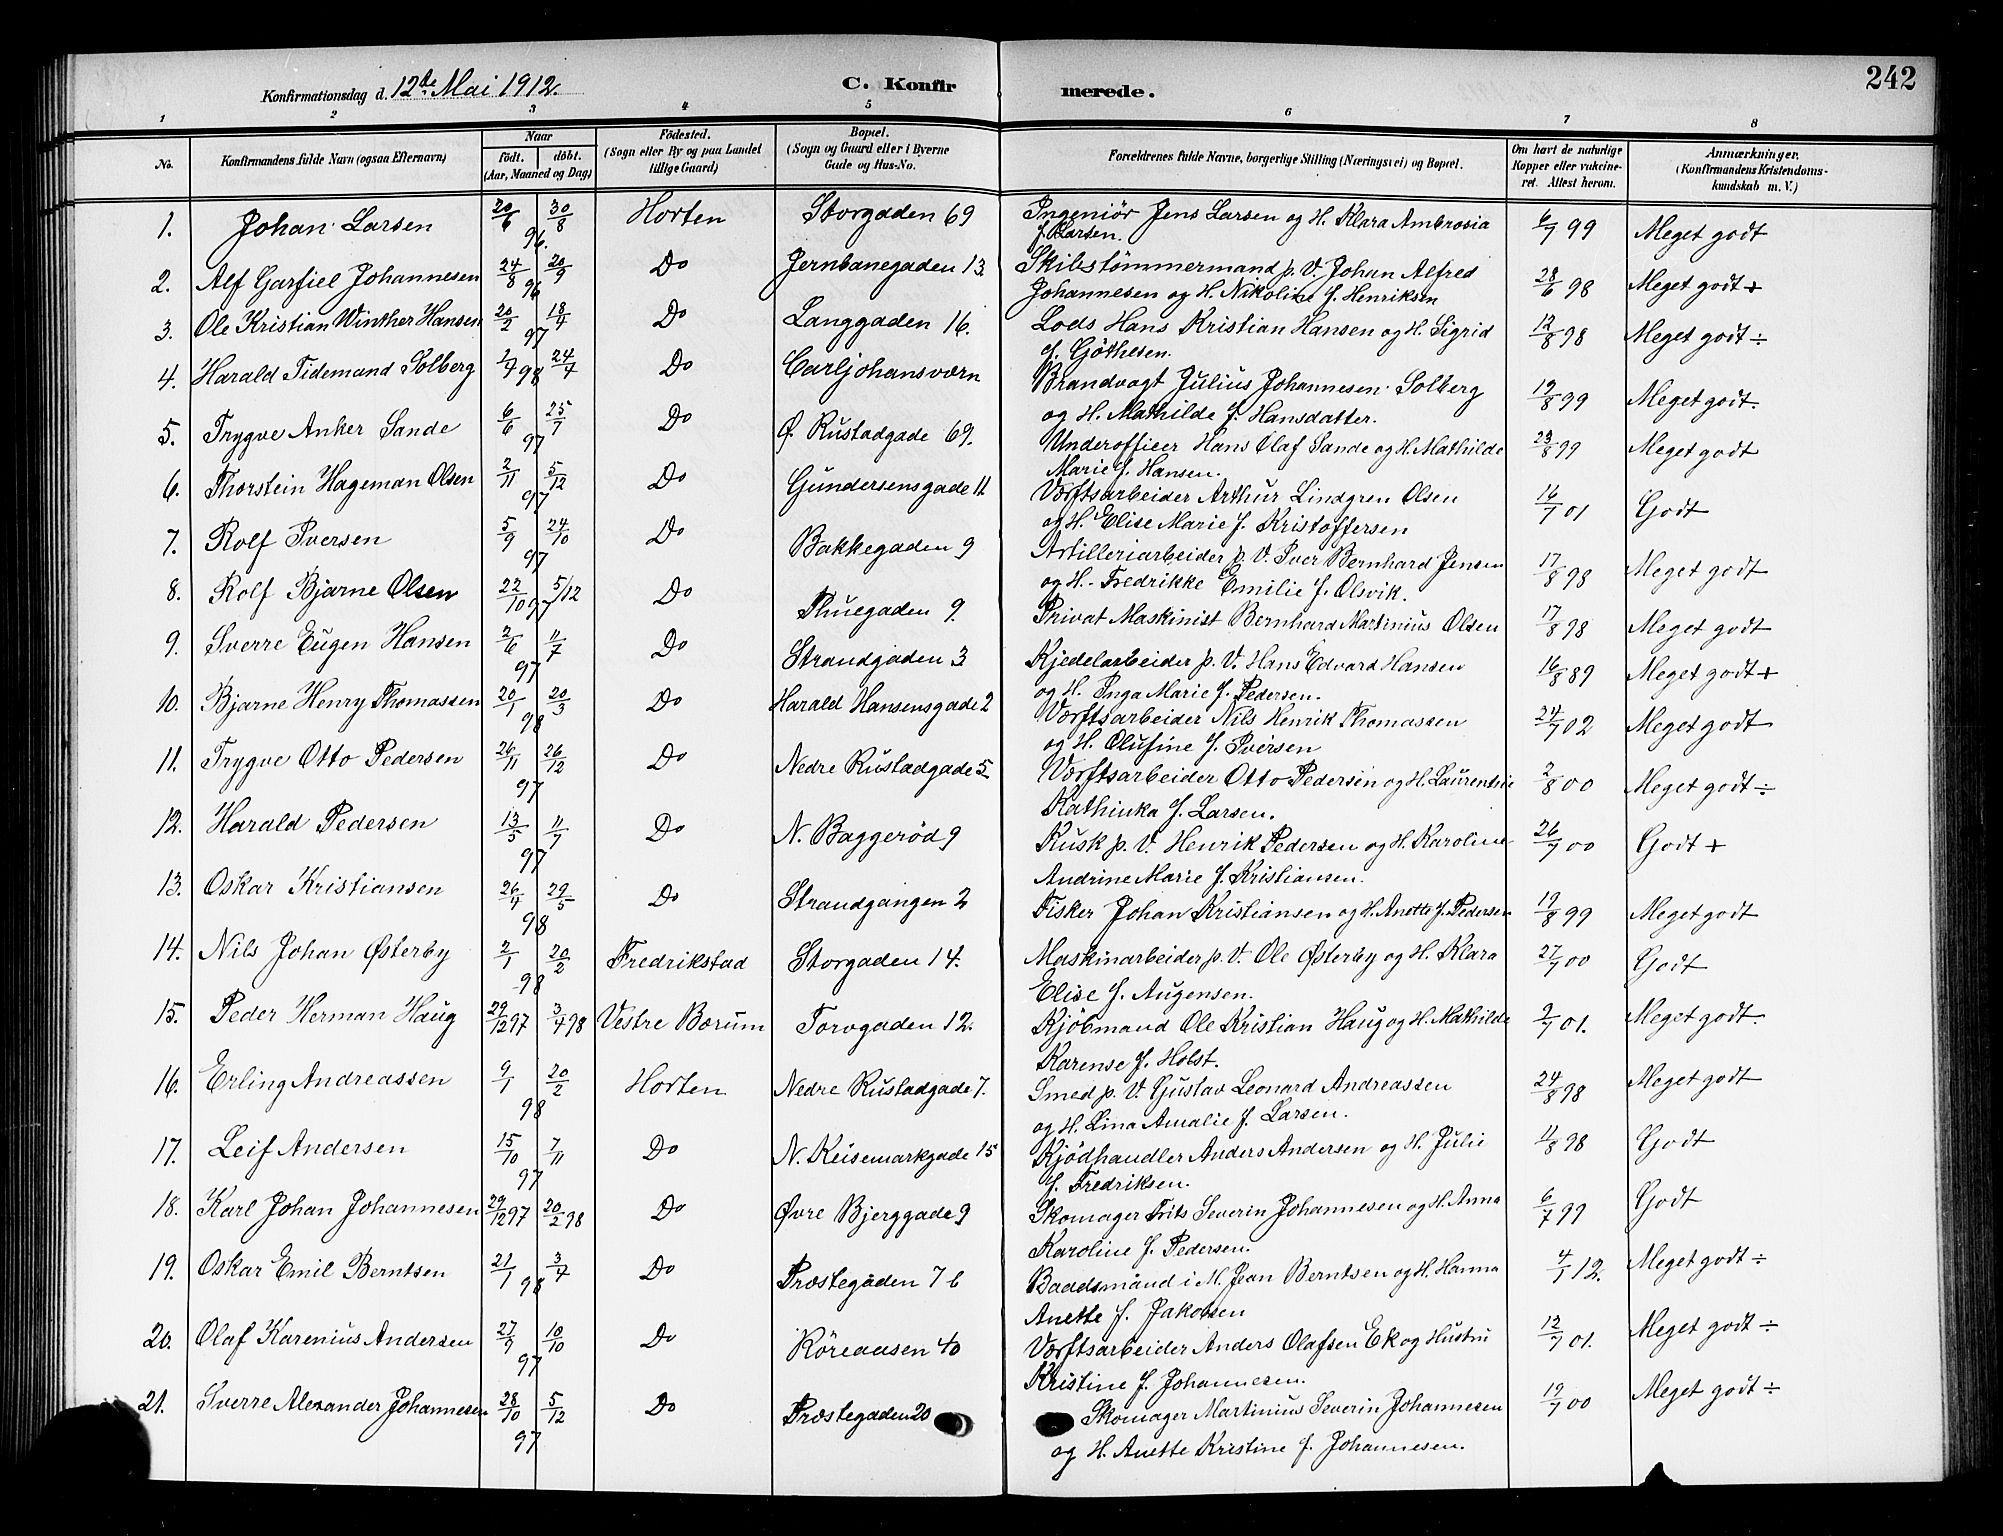 Konfirmationsdag d. 12te Mai 1912. C. Konfirmerede. 242
1 2 3 4 5 6 7 8
No. Konfirmandens fulde Navn (ogsaa Efternavn) Naar født. døbt. (Aar, Maaned og Dag) Födested. (Sogn eller By og paa Landet tillige Gaard) Bopæl. (Sogn og Gaard eller i Byerne Gade og Hus-No. Forældrenes fulde Navne, borgerlige Stilling (Næringsvei) og Bopæl. Om havt de naturlige Kopper eller vakcineret. Attest herom. Anmærkninger. (Konfirmandens Kristendomskundskab m. V.)
1. Johan Larsen 20/6 30/8 96. Horten Storgaden 69 Ingeniör Jens Larsen og H. Klara Ambrosia f. Larsen. 6/7 99 Meget godt
2. Alf Garfiel Johannesen 24/8 20/9 96 Do Jernbanegaden 13 Skibstømmermand p. V. Johan Alfred Johannesen og H. Nikoline f. Henriksen 28/6 98 Meget godt +
3. Ole Kristian Winther Hansen 20/2 18/4 97 Do Langgaden 16. Lods Hans Kristian Hansen og H. Sigrid f. Göthesen. 12/8 98 Meget godt ÷
4. Harald Tidemand Solberg 1/4 98 24/4 Do Carljohansværn Brandvagt Julius Johannesen Solberg og H. Mathilde f. Hansdatter. 19/8 99 Meget godt.
5. Trygve Anker Sande 6/6 25/7 97 Do Ø. Rustadgade 69. Underofficer Hans Olaf Sande og H. Mathilde Marie f. Hansen. 23/8 99 Meget godt
6. Thorstein Hageman Olsen 2/11 5/12 97 Do Gundersensgade 11 Værftsarbeider Arthur Lindgren Olsen og H. Elise Marie f. Kristoffersen 16/7 01 Godt
7. Rolf Iversen 5/9 24/10 97 Do Bakkegaden 9 Artilleriarbeider p. V. Iver Bernhard Jensen og H. Fredrikke Emilie f. Olsvik. 17/8 98 Meget godt
8. Rolf Bjarne Olsen 22/10 97 5/12 Do Thuegaden 9. Privat Maskinist Bernhard Martinius Olsen 17/8 98 Meget godt
9. Sverre Eugen Hansen 2/6 11/7 97 Do Strandgaden 3 Kjedelarbeider p. V. Hans Edvard Hansen og H. Inga Marie f. Pedersen. 16/8 89 Meget godt +
10. Bjarne Henry Thomassen 20/1 20/3 98 Do Harald Hansensgade 2 Værftsarbeider Nils Henrik Thomassen og H. Olufine f. Iversen 24/7 02 Meget godt
11. Trygve Otto Pedersen 26/11 26/12 97 Do Nedre Rustadgade 5 Værftsarbeider Otto Pedersen og H. Laurentsie Kathinka f. Larsen. 2/8 00 Meget godt ÷
12. Harald Pedersen 13/5 11/7 97 Do N. Baggerød 9 Kusk p. V. Henrik Pedersen og H. Karoline Andrine Marie f. Kristiansen. 26/7 00 Godt +
13. Oskar Kristiansen 26/4 29/5 98 Do Strandgangen 2 Fisker Johan Kristiansen og H. Anette f. Pedersen 19/8 99 Meget godt
14. Nils Johan Østerby 2/1 20/2 98 Fredrikstad Storgaden 14. Maskinarbeider p. V. Ole Østerby og H. Klara Elise f. Augensen. 27/7 00 Godt
15. Peder Herman Haug 29/12 97 3/4 98 Vestre Bærum Torvgaden 12. Kjöbmand Ole Kristian Haug og H. Mathilde Karense f. Holst. 9/7 01. Meget godt.
16. Erling Andreassen 9/1 20/2 98 Horten Nedre Rustadgade 7. Smed p. V. Gustav Leonard Andreassen og H. Lina Amalie f. Larsen. 24/8 98 Meget godt
17. Leif Andersen 15/10 7/11 97 Do N. Keisemarkgade 15 Kjödhandler Anders Andersen og H. Julie f. Fredriksen. 11/8 98 Godt
18. Karl Johan Johannesen 29/12 97 20/2 98 Do Øvre Bjerggade 9 Skomager Frits Severin Johannesen og H. Anna Karoline f. Pedersen. 6/7 99 Godt
19. Oskar Emil Berntsen 21/1 3/4 98 Do Præstegaden 7 b Baadsmand i M. Jean Berntsen og H. Hanna Anette f. Jakobsen 4/1 12. Meget godt ÷
20. Olaf Karenius Andersen 27/9 10/10 97 Do Röreaasen 40 Værftsarbeider Anders Olafsen Ek og Hustru Kristine f. Johannesen. 12/7 01. Meget godt ÷
21. Sverre Alexander Johannesen 28/10 5/12 97 Do Præstegaden 20 Skomager Martinius Severin Johannesen og H. Anette Kristine f. Johannesen. 19/7 00 Meget godt ÷